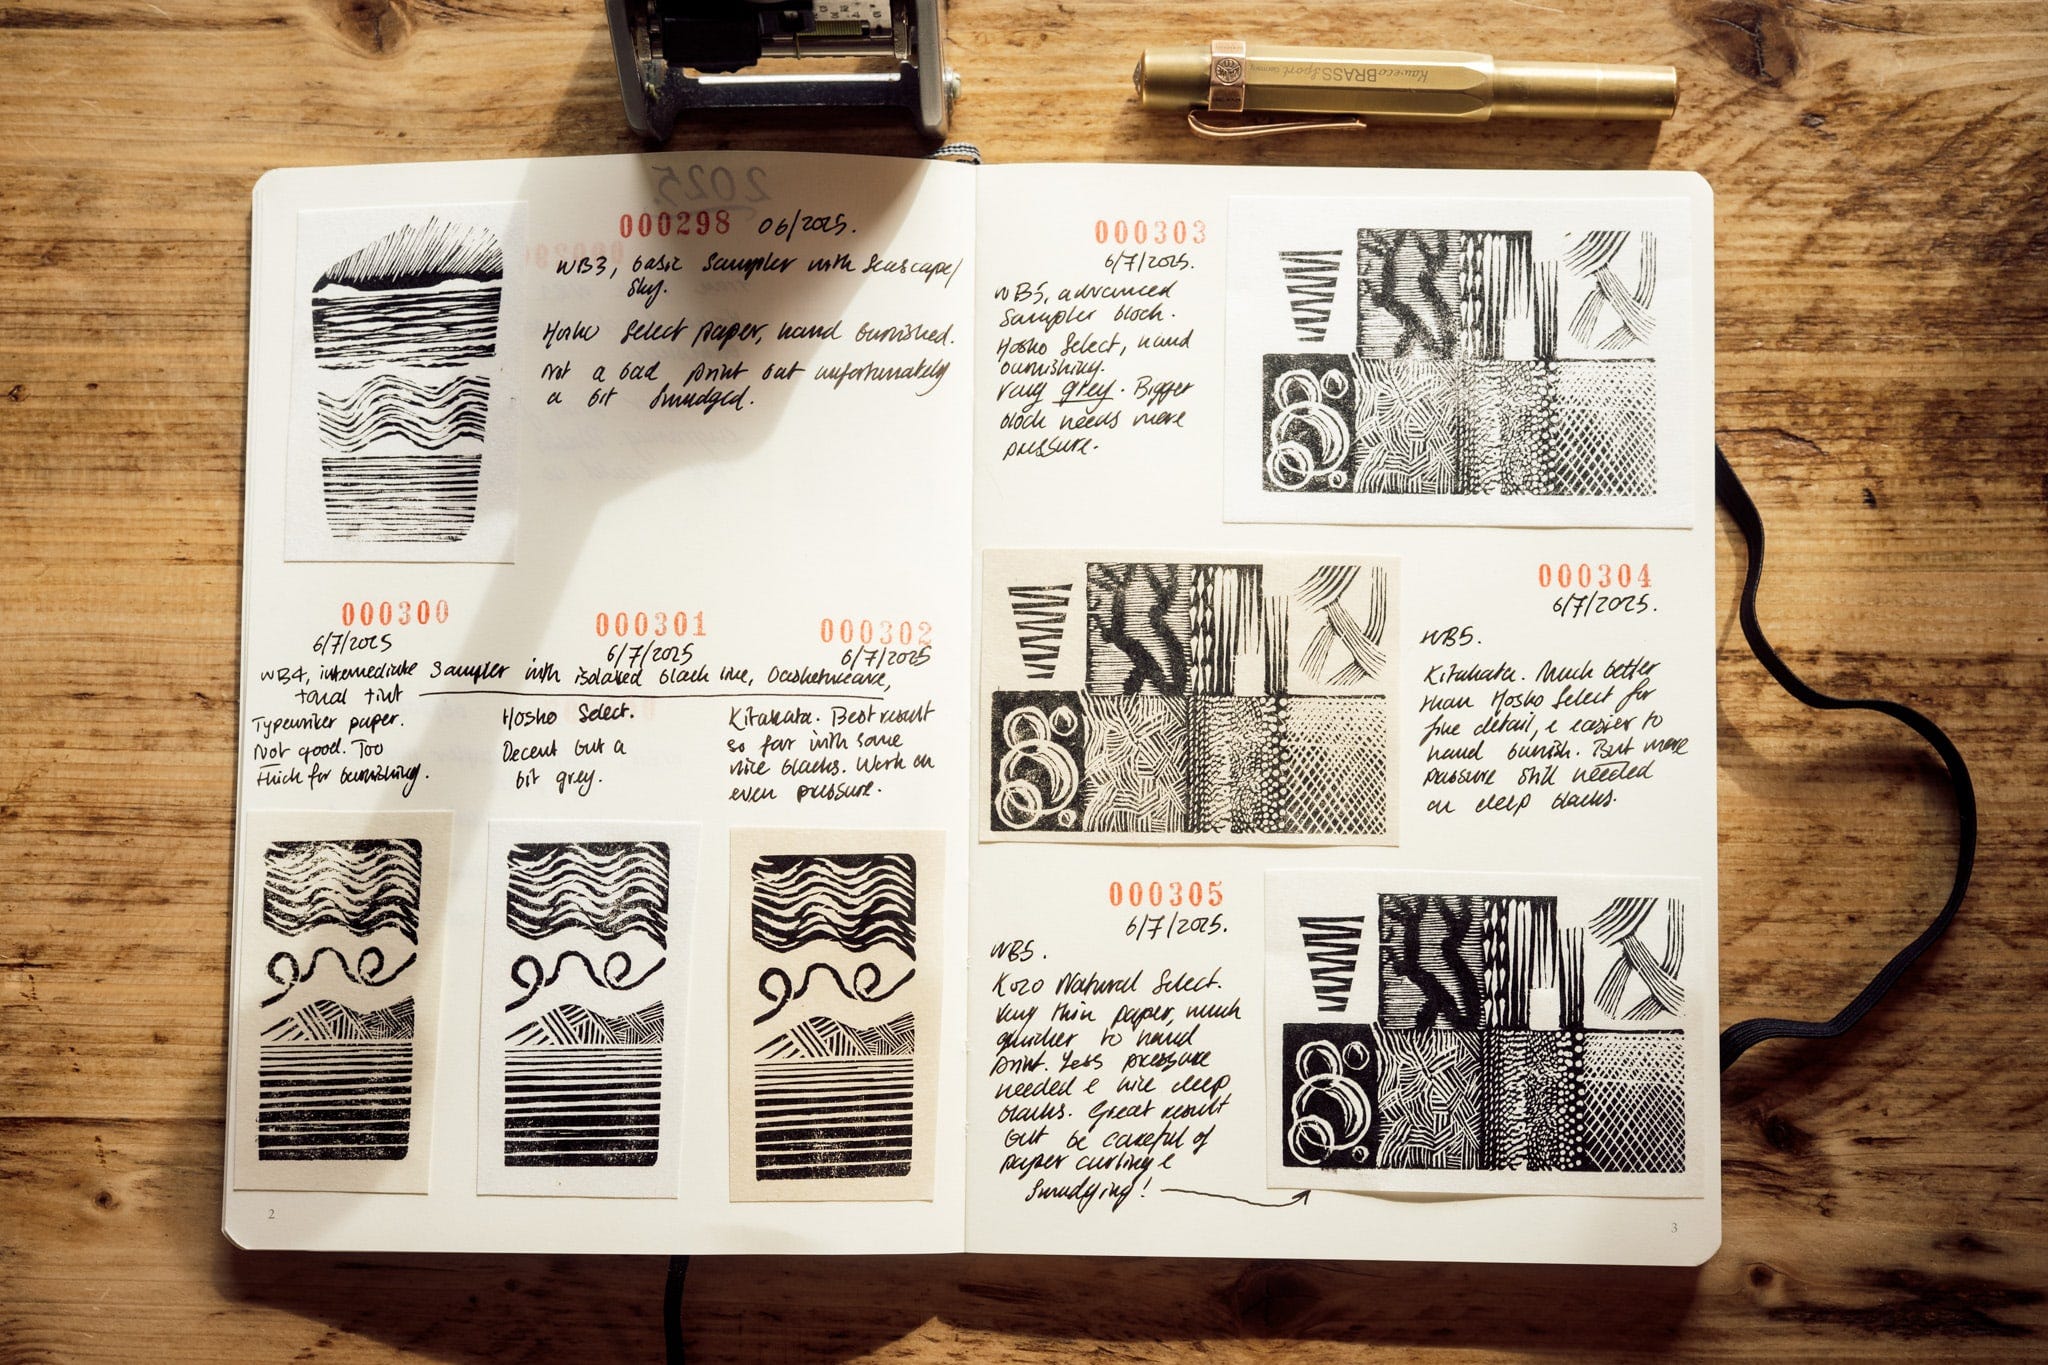 Kaweco BRASS Sport Germany
2025.
000298 06/2025.
WB3, basic sampler with seascape/
sky.
Hosho Select paper, hand burnished.
Not a bad print but unfortunately
a bit smudged.
000300
6/7/2025
000301
6/7/2025
000302
6/7/2025
WB4, intermediate sampler with isolated black line, basketweave,
tonal tint
Typewriter paper.
Not good. Too
thick for burnishing.
Hosho Select.
Decent but a
bit grey.
Kitakata. Best result
so far with some
nice blacks. Work on
even pressure.
2
000303
6/7/2025.
WB5, advanced
sampler block.
Hosho Select, hand
burnishing.
Very grey. Bigger
block needs more
pressure.
000304
6/7/2025.
WB5.
Kitakata. Much better
than Hosho Select for
fine detail, & easier to
hand burnish. But more
pressure still needed
on deep blacks.
000305
6/7/2025.
WB5.
Kozo Natural Select.
Very thin paper, much
quicker to hand
print. Less pressure
needed & nice deep
blacks. Great result
but be careful of
paper curling &
smudging!
3